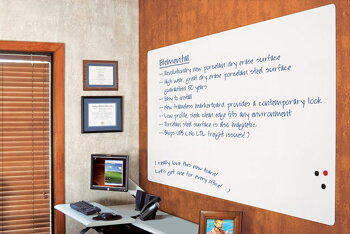 Elemental
- Revolutionary new porcelain dry erase surface
- High wear, great dry erase porcelain steel surface
guaranteed 50 years
- Easy to install
- New frameless markerboard provides a contemporary look
- Low profile, sleek clean edge fits any environment
- Porcelain steel surface is also magnetic
- Ships UPS (No LTL freight issues!)
I really love this new board!
Let's get one for every office! :)